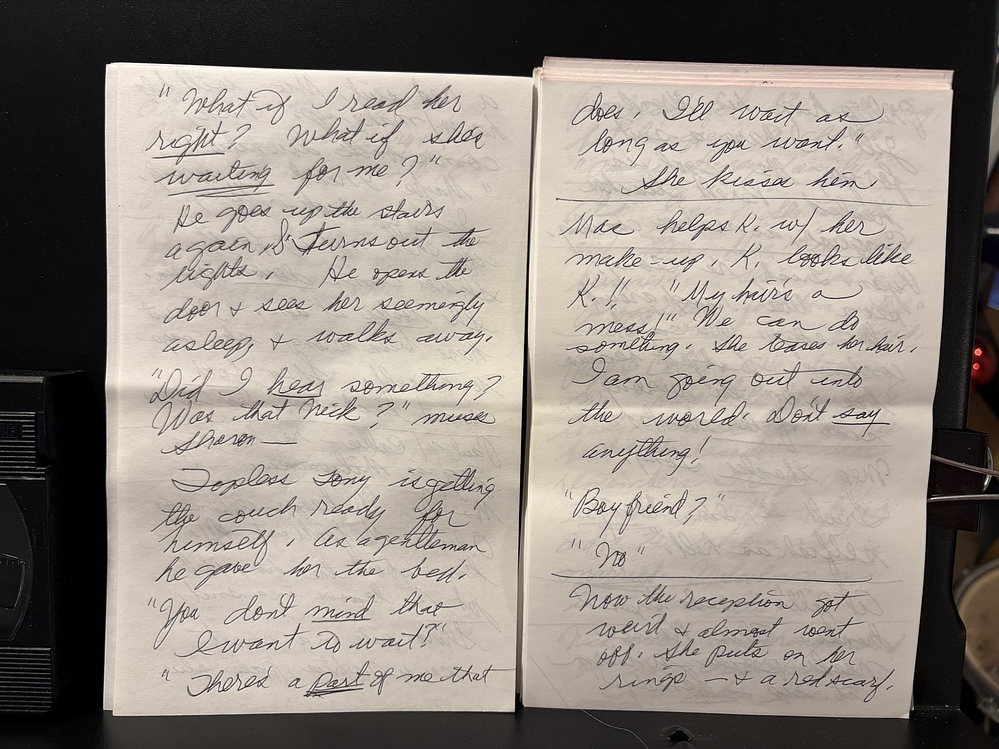 " What if I read her
right? What if she's
waiting for me?"
He goes up the stairs
again, & turns out the
lights. He opens the
door & sees her seemingly
asleep, & walks away.
"Did I hear something?
Was that Nick?" muses
Sharon —
Topless Tony is getting
the couch ready for
himself. As a gentleman
he gave her the bed.
"You don't mind that
I want to wait?"
" There's a part of me that
does. I'll wait as
long as you want."
She kisses him.
Mac helps K. w/ her
make-up. K. looks like
K.!! "My hair's a
mess!" We can do
something. She teases her hair.
I am going out into
the world. Don't say
anything!
"Boyfriend?"
" No"
Now the reception got
weird & almost went
off. She puts on her
rings — & a red scarf.